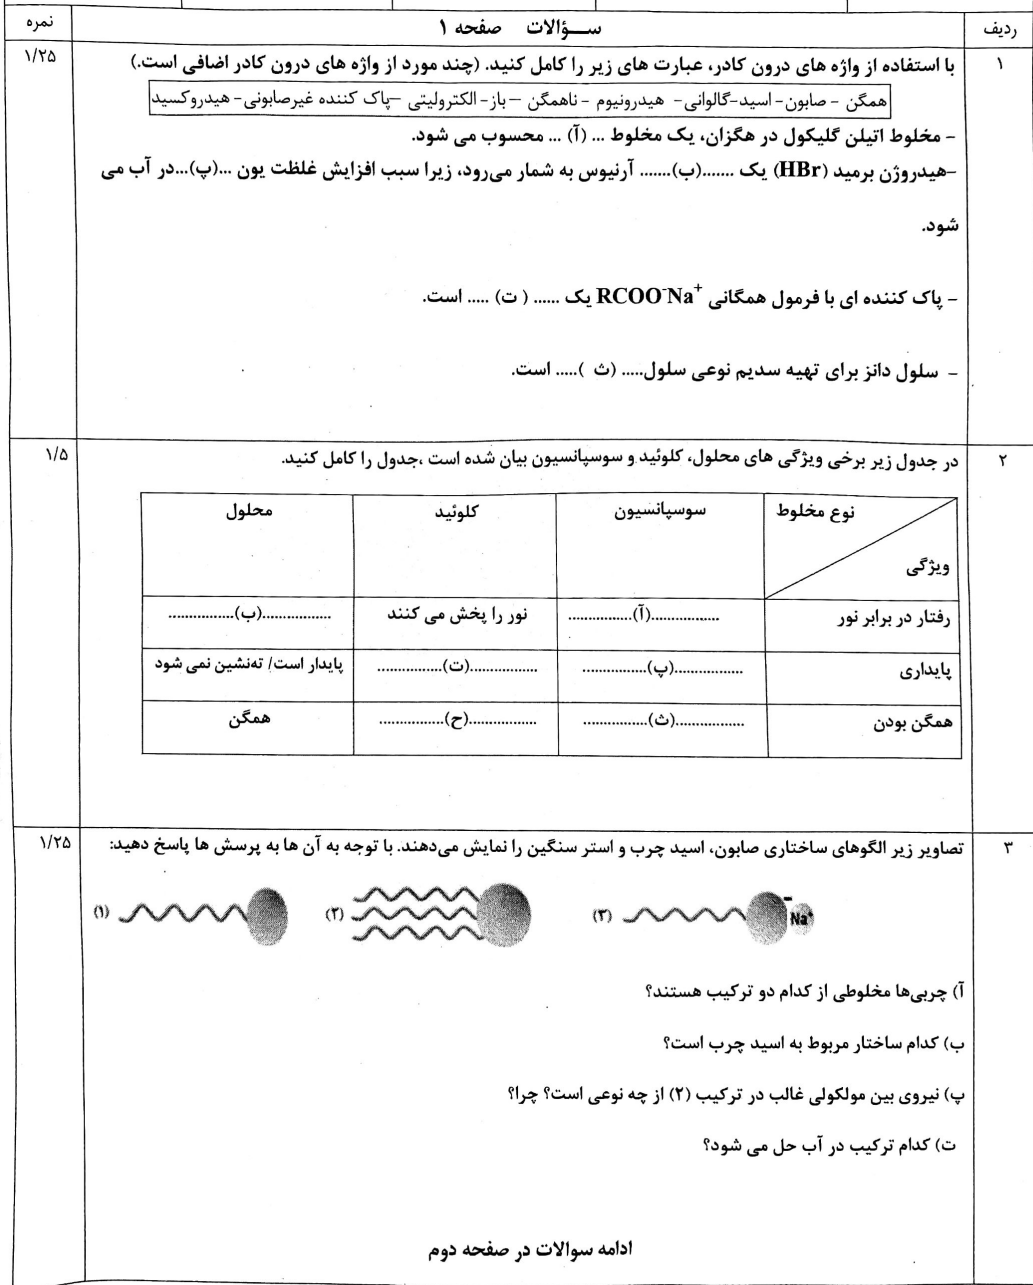 ردیف سـؤالات صفحه ۱ نمره
۱ با استفاده از واژه های درون کادر، عبارت های زیر را کامل کنید. (چند مورد از واژه های درون کادر اضافی است.) ۱/۲۵
همگن - صابون - اسید-گالوانی- هیدرونیوم - ناهمگن –باز- الکترولیتی –پاک کننده غیرصابونی- هیدروکسید
- مخلوط اتیلن گلیکول در هگزان، یک مخلوط ... (آ) ... محسوب می شود.
-هیدروژن برمید (HBr) یک .......(ب)....... آرنیوس به شمار می‌رود، زیرا سبب افزایش غلظت یون ...(پ)...در آب می
شود.
- پاک کننده ای با فرمول همگانی RCOO⁻Na⁺ یک ...... ( ت) ..... است.
- سلول دانز برای تهیه سدیم نوعی سلول..... (ث )..... است.
۲ در جدول زیر برخی ویژگی های محلول، کلوئید و سوسپانسیون بیان شده است ،جدول را کامل کنید. ۱/۵
نوع مخلوط سوسپانسیون کلوئید محلول
ویژگی
رفتار در برابر نور ................(آ)................ نور را پخش می کنند ................(ب)................
پایداری ................(پ)................ ................(ت)................ پایدار است/ ته‌نشین نمی شود
همگن بودن ................(ث)................ ................(ح)................ همگن
۳ تصاویر زیر الگوهای ساختاری صابون، اسید چرب و استر سنگین را نمایش می‌دهند. با توجه به آن ها به پرسش ها پاسخ دهید: ۱/۲۵
(۱) (۲) (۳) - Na⁺
آ) چربی‌ها مخلوطی از کدام دو ترکیب هستند؟
ب) کدام ساختار مربوط به اسید چرب است؟
پ) نیروی بین مولکولی غالب در ترکیب (۲) از چه نوعی است؟ چرا؟
ت) کدام ترکیب در آب حل می شود؟
ادامه سوالات در صفحه دوم